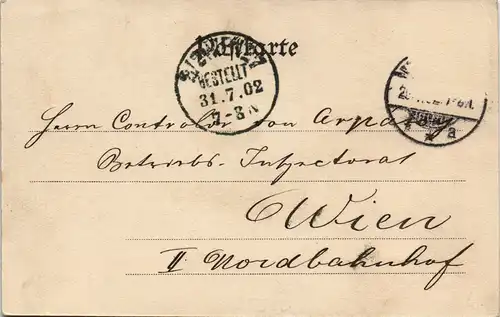 Postkarte
BESTELLT
31.7.02
7-8 V
Herrn Controlor von Arpad
Betriebs-Inspectorat
Wien
II Nordbahnhof